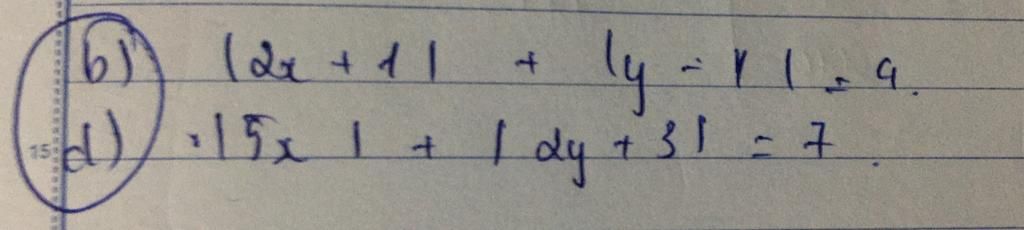 b) |2x + 1| + |y - 1| = 4.
15
d) |5x| + |2y + 3| = 7.